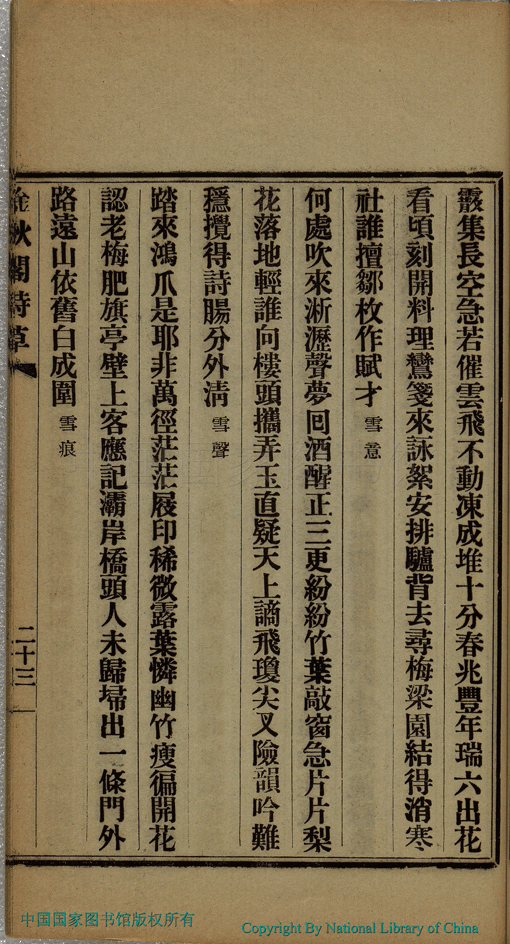 霰集長空急若催雲飛不動凍成堆十分春兆豐年瑞六出花
看頃刻開料理鸞箋來詠絮安排驢背去尋梅梁園結得消寒
社誰擅鄒枚作賦才 雪意
何處吹來淅瀝聲夢回酒醒正三更紛紛竹葉敲窗急片片梨
花落地輕誰向樓頭攜弄玉直疑天上謫飛瓊尖叉險韻吟難
穩攪得詩腸分外淸 雪聲
踏來鴻爪是耶非萬徑茫茫屐印稀微露葉憐幽竹瘦徧開花
認老梅肥旗亭壁上客應記灞岸橋頭人未歸埽出一條門外
路遠山依舊白成圍 雪痕
秋閣詩草
二十三
中国国家图书馆版权所有
Copyright By National Library of China